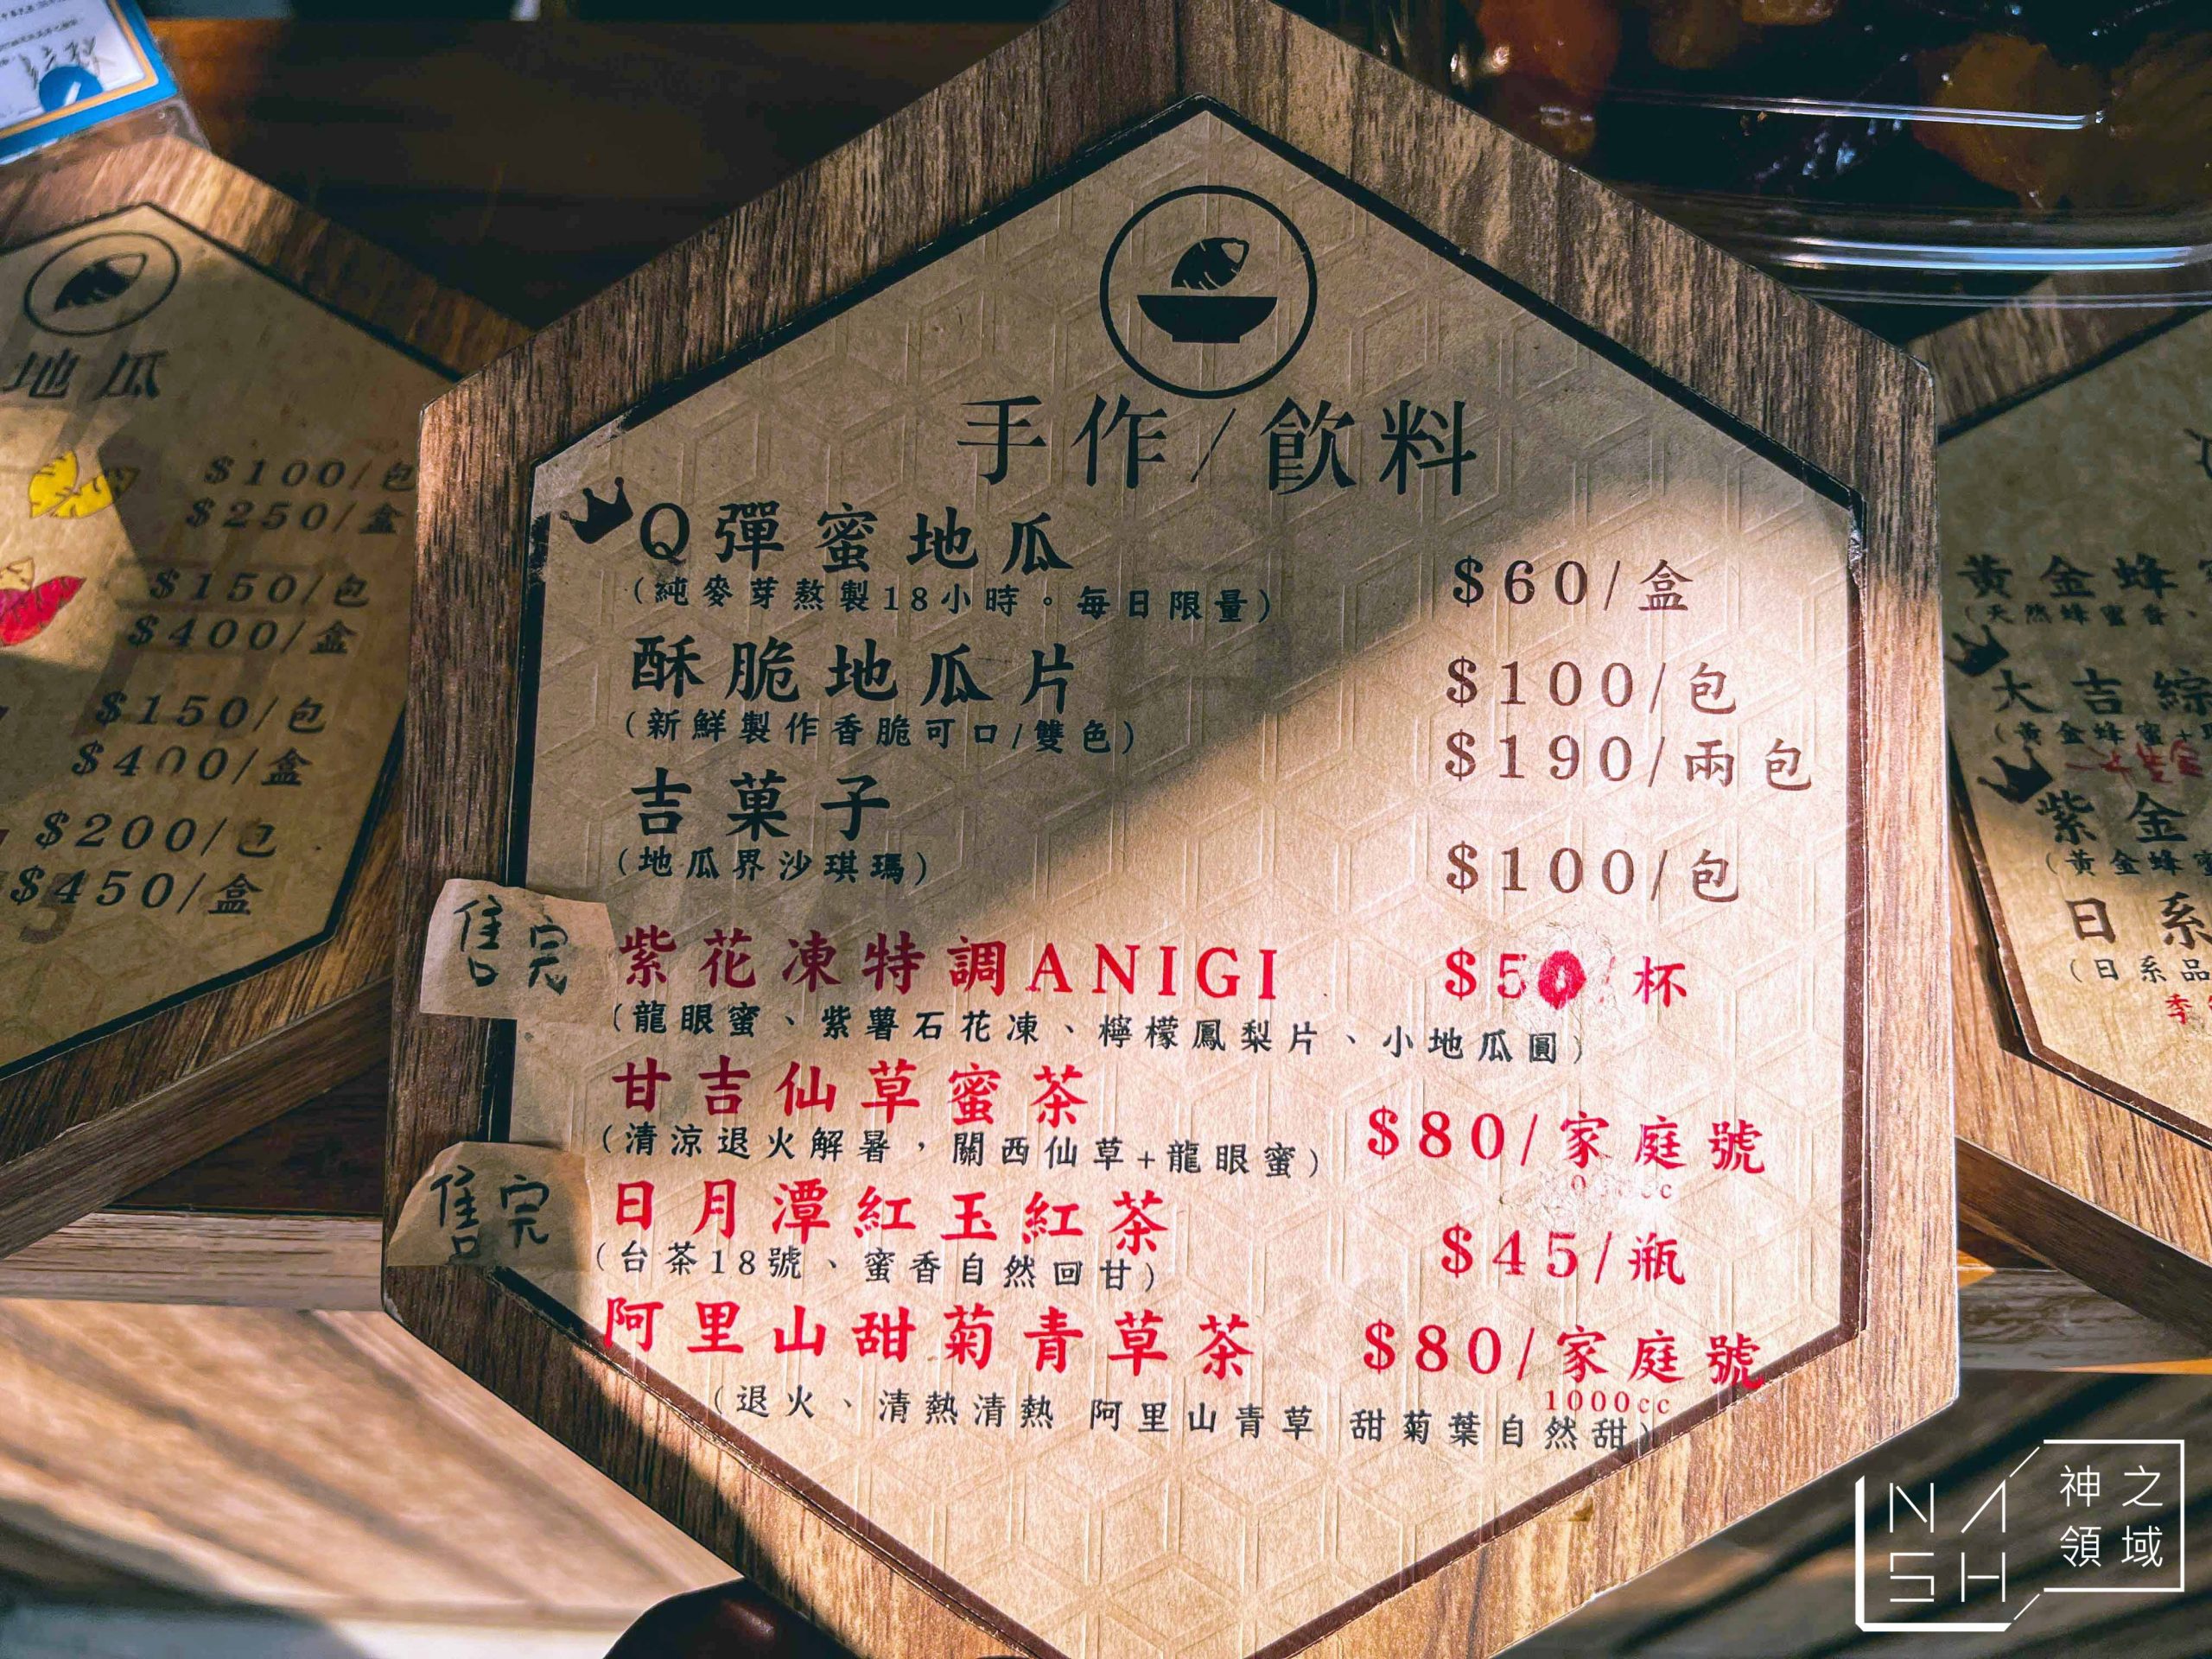 手作/飲料
Q彈蜜地瓜
(純麥芽熬製18小時。每日限量)
$60/盒
酥脆地瓜片
(新鮮製作香脆可口/雙色)
$100/包
$190/兩包
吉菓子
(地瓜界沙琪瑪)
$100/包
售完
紫花凍特調ANIGI
$50/杯
(龍眼蜜、紫薯石花凍、檸檬鳳梨片、小地瓜圓)
甘吉仙草蜜茶
(清涼退火解暑，關西仙草+龍眼蜜)
$80/家庭號
售完
日月潭紅玉紅茶
(台茶18號、蜜香自然回甘)
$45/瓶
阿里山甜菊青草茶
$80/家庭號
1000cc
(退火、清熱清熱 阿里山青草 甜菊葉自然甜)
地瓜
$100/包
$250/盒
$150/包
$400/盒
$150/包
$400/盒
$200/包
$450/盒
黃金蜂
(天然蜂蜜香、
大吉綜
(黃金蜂蜜+
紫金
(黃金蜂蜜
日系
(日系品
季
NASH
神之
領域